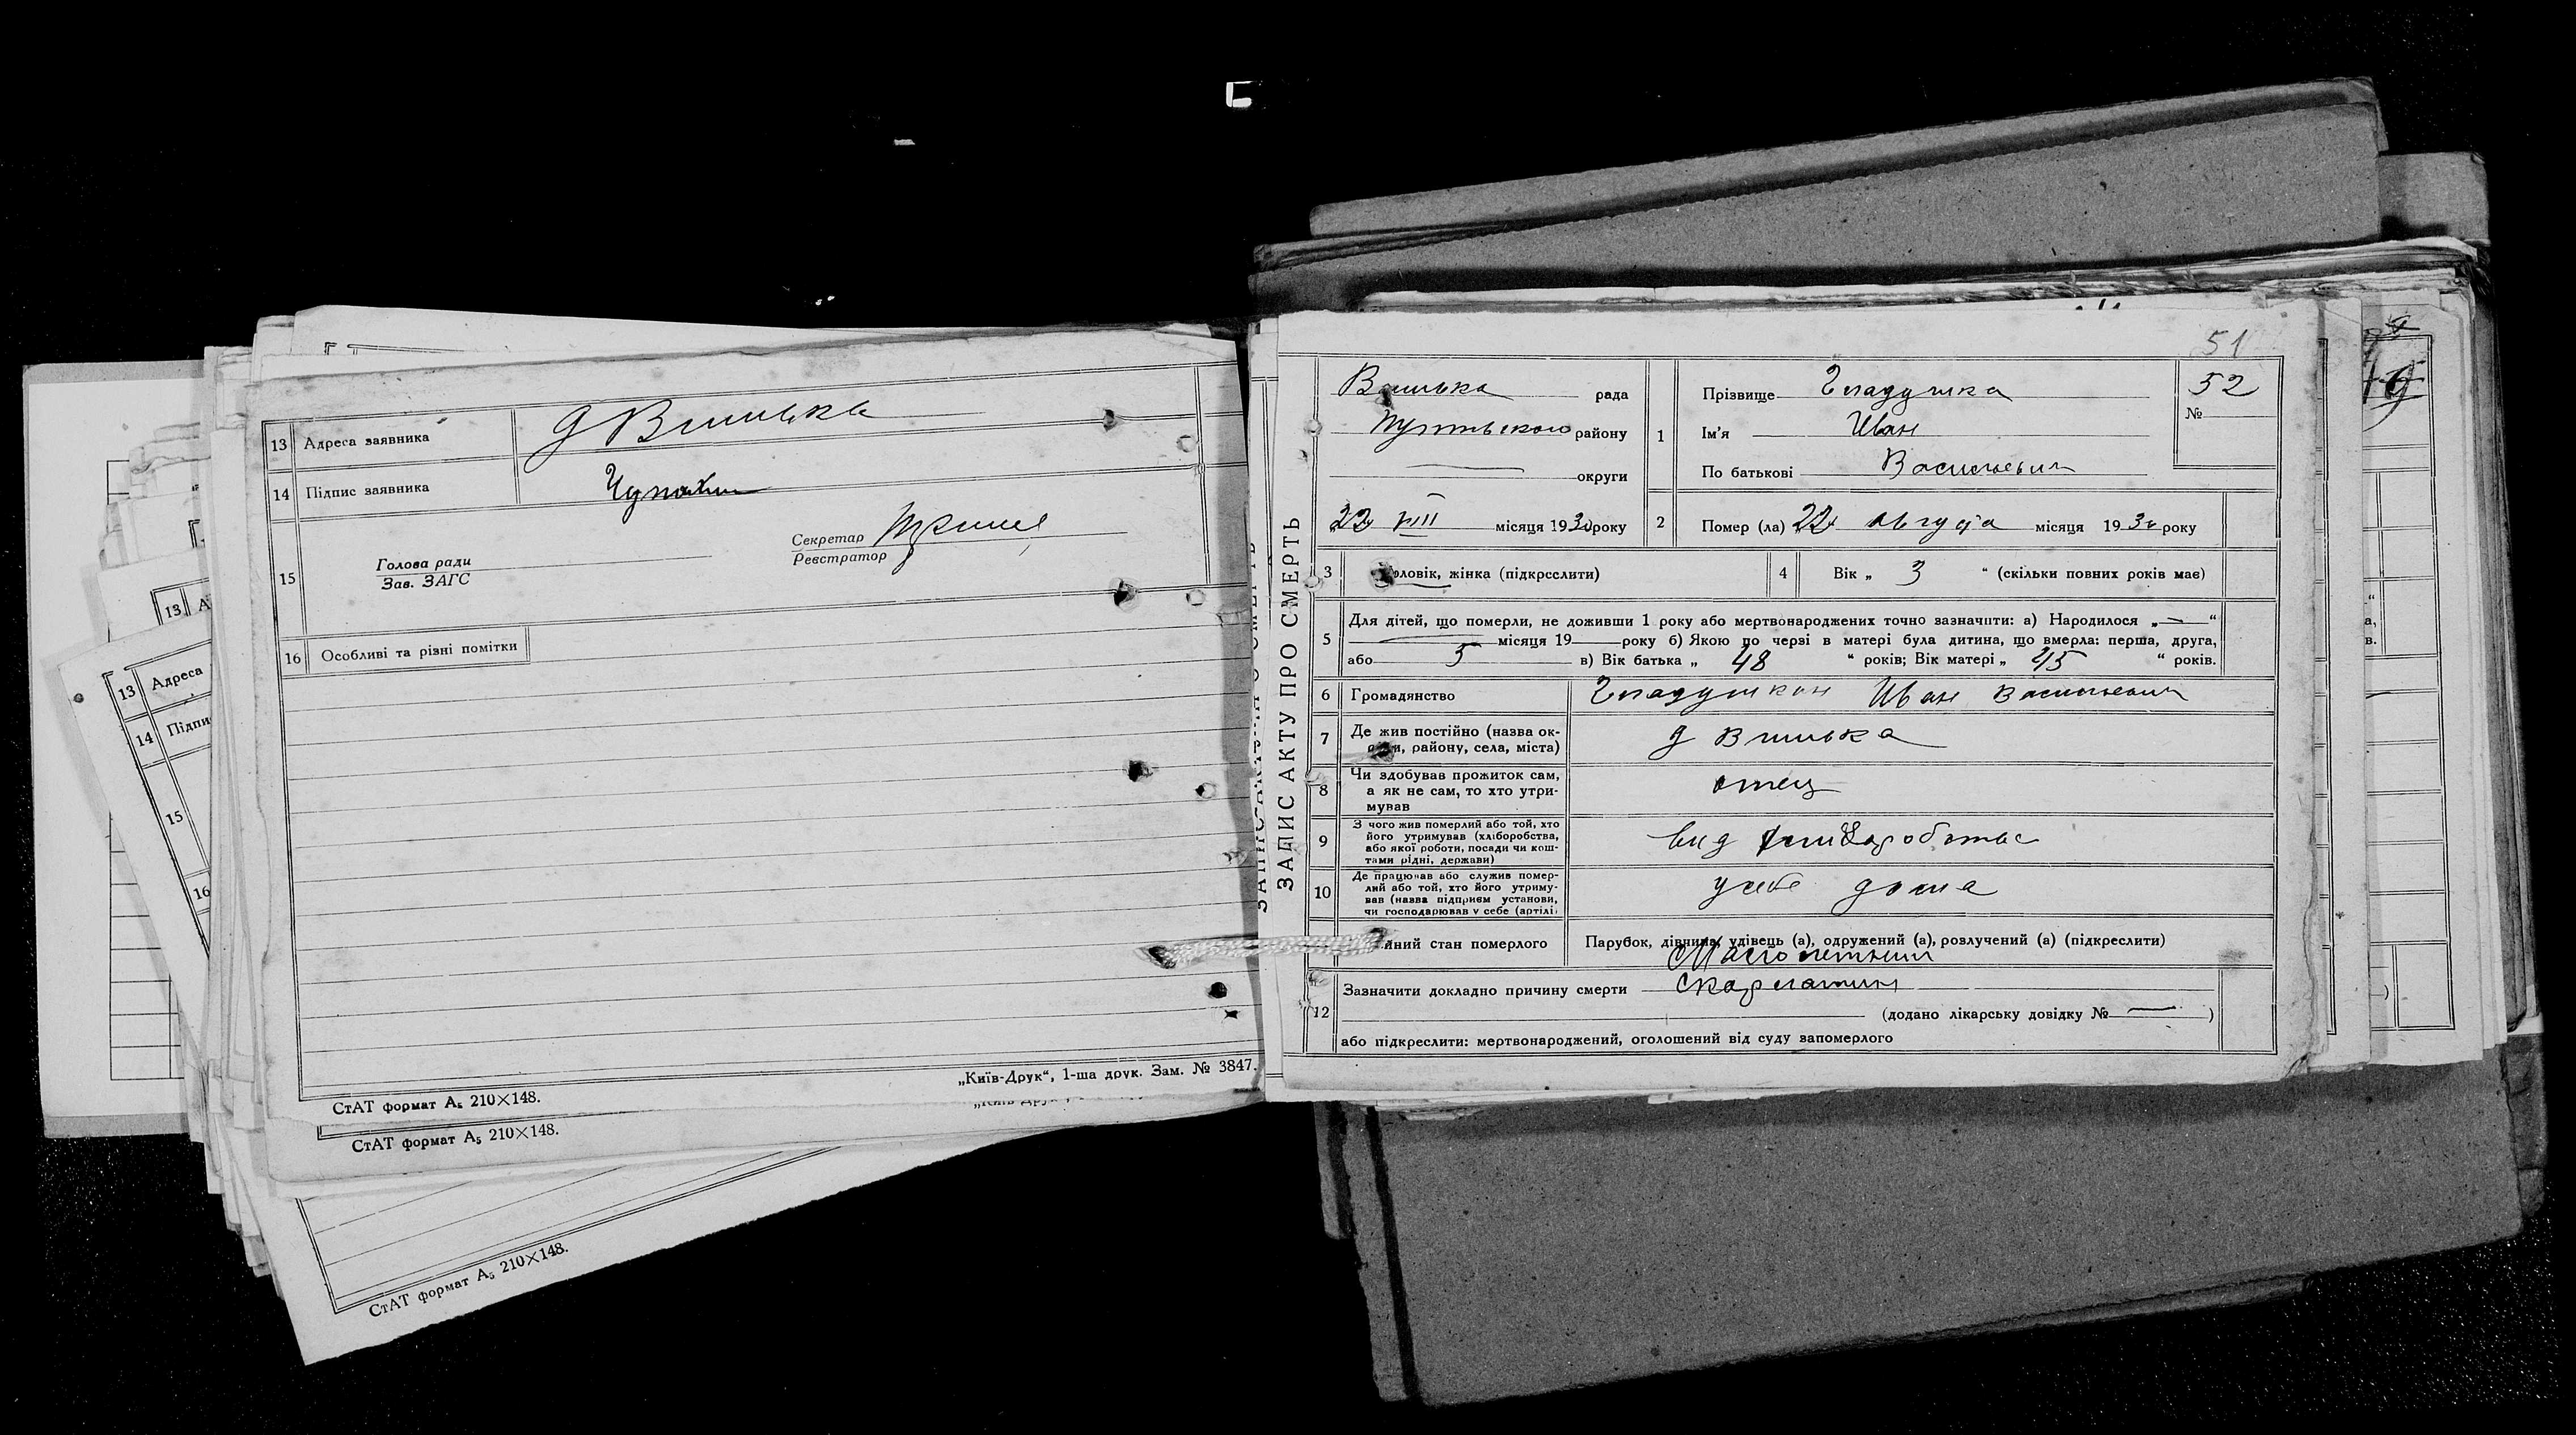 13 Адреса заявника
14 Підпис заявника
15 Голова ради
Зав. ЗАГС
Секретар
Реєстратор
16 Особливі та різні помітки
„Київ-Друк“, 1-ша друк. Зам. № 3847.
СтАТ формат А5 210×148.
СтАТ формат А5 210×148.
СтАТ формат А5 210×148.
13 Адреса
14
15
16
13
ЗАПИС АКТУ ПРО СМЕРТЬ
51
52
№
рада
району
округи
22 VIII місяця 1930 року
1 Прізвище
Ім'я Иван
По батькові Васильевич
2 Помер (ла) 22 августа місяця 1930 року
3 жінка (підкреслити)
4 Вік „ 3 “ (скільки повних років має)
5 Для дітей, що померли, не доживши 1 року або мертвонароджених точно зазначити: а) Народилося „—“
місяця 19 року б) Якою по черзі в матері була дитина, що вмерла: перша, друга,
або 5 в) Вік батька „ 48 “ років; Вік матері „ 45 “ років.
6 Громадянство Иван Васильевич
7 Де жив постійно (назва ок-
району, села, міста) д
8 Чи здобував прожиток сам,
а як не сам, то хто утри-
мував отец
9 З чого жив померлий або той, хто
його утримував (хліборобства,
або якої роботи, посади чи кош-
тами рідні, держави) вид
10 Де працював або служив помер-
лий або той, хто його утриму-
вав (назва підприєм установи,
чи господарював у себе (артілі)
у себе дома
стан померлого Парубок, дівчина, удівець (а), одружений (а), розлучений (а) (підкреслити)
Малолетний
12 Зазначити докладно причину смерти скарлатин
(додано лікарську довідку № — )
або підкреслити: мертвонароджений, оголошений від суду запомерлого